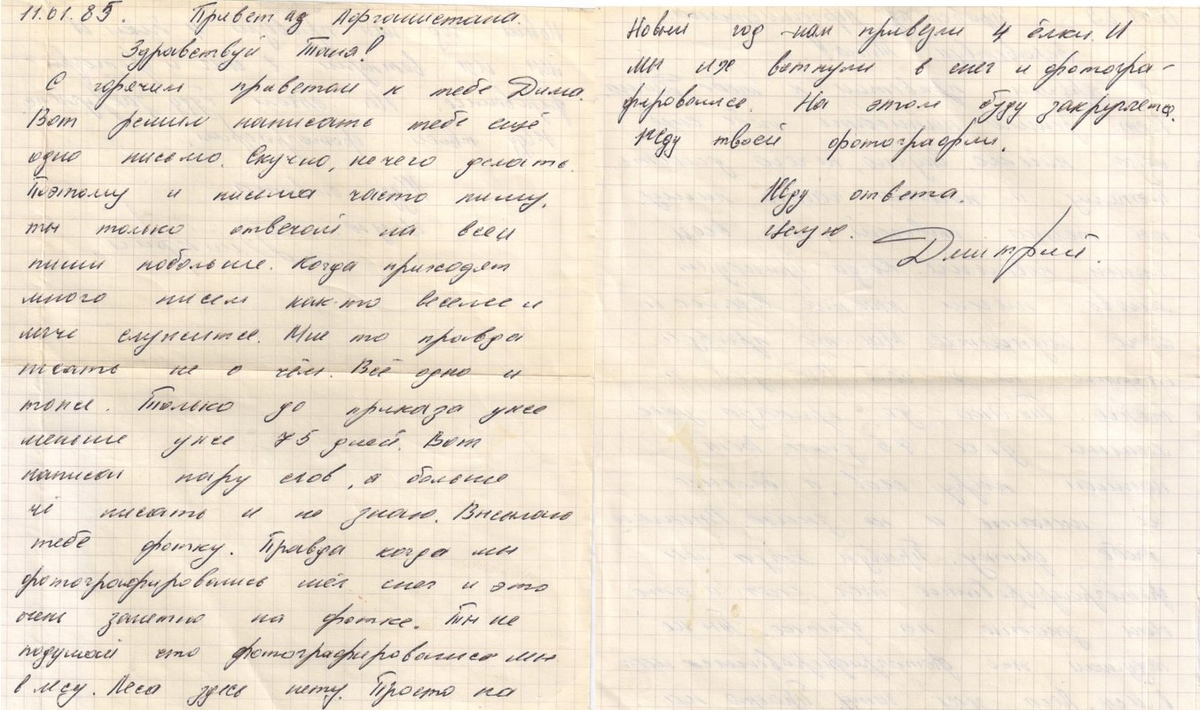 11.01.85. Привет из Афганистана.
Здравствуй Таня!
С горячим приветом к тебе Дима.
Вот решил написать тебе ещё
одно письмо. Скучно, нечего делать.
Поэтому и письма часто пишу,
ты только отвечай на всеи
пиши побольше. Когда приходят
много писем как-то веселее и
легче служится. Мне то правда
писать не о чём. Всё одно и
тоже. Только до приказа уже
меньше уже 75 дней. Вот
написал пару слов, а больше
чё писать и не знаю. Высылаю
тебе фотку. Правда когда мы
фотографировались шёл снег и это
очень заметно на фотке. Ты не
подумай что фотографировались мы
в лесу. Леса здесь нету. Просто на
Новый год нам привезли 4 ёлки. И
мы их воткнули в снег и фотогра-
фировались. На этом буду закруглятся.
Жду твоей фотографии.
Жду ответа.
Целую. Дмитрий.